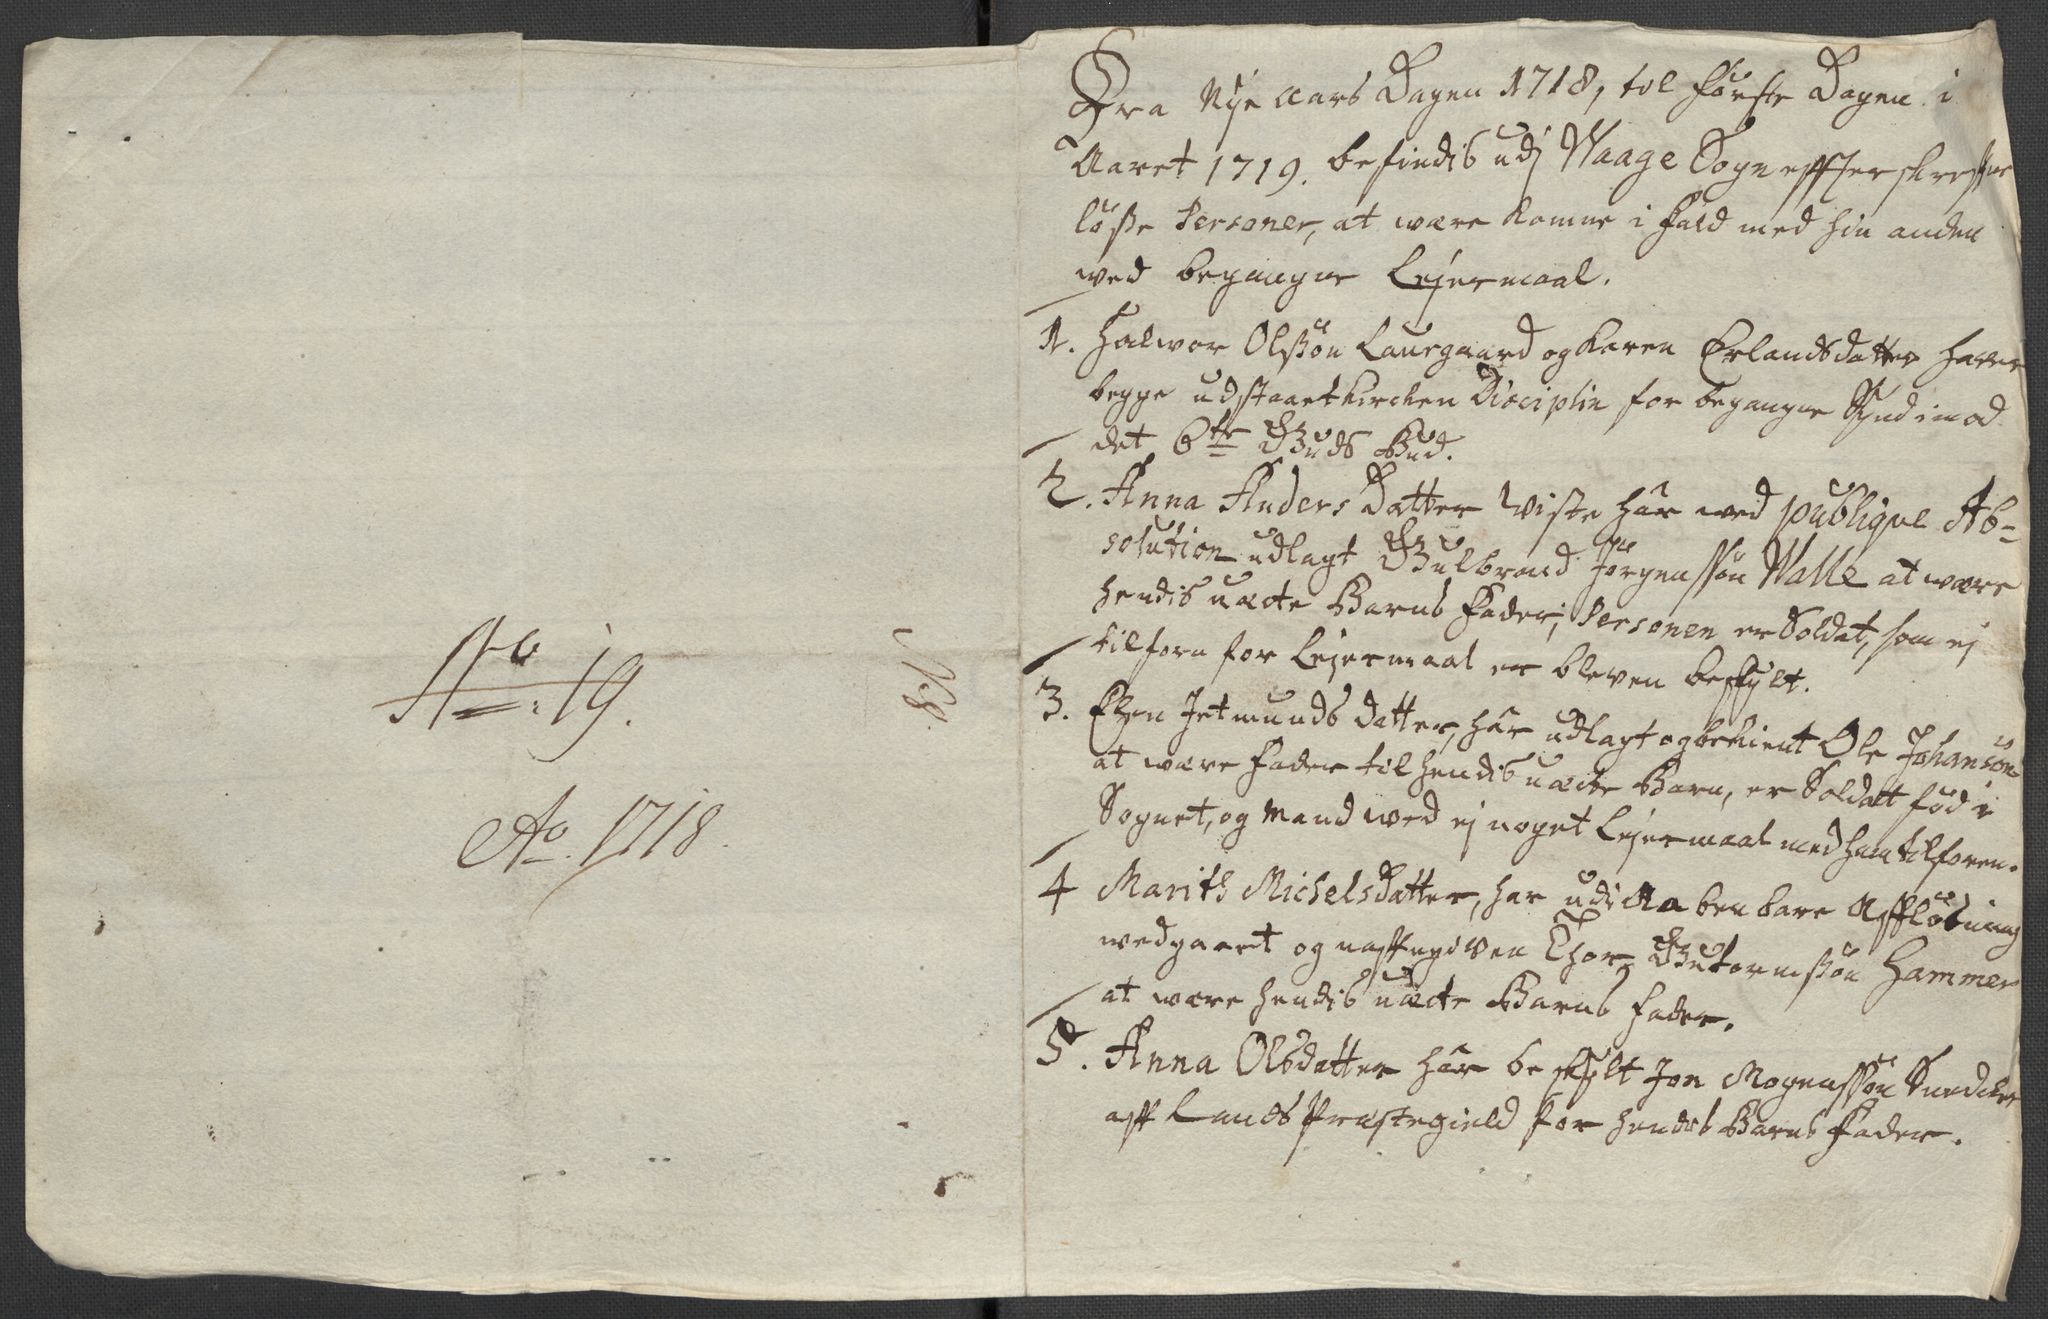 No: 19.
Ao. 1718.
Fra Nye aars Dagen 1718, til første Dagen i
Aaret 1719. befindis udj Waage Sogn effterskrefne
løsse Personer, at were komne i Fald med hin anden
wed begangne Lejermaal.
1. Halwor Olssøn Laurgaard og Karen Erlandsdatter hawer
begge udstaaet Kirckens Disciplin for begangne Synd imod
det 6te Guds Bud.
2. Anna Anders Datter Wiste har wed publique Ab-
solution udlagt Gulbrand Jörgenssøn Walle at were
hendis uæcte Barns Fader; Personen er Soldat, som ej
tilforn for Lejermaal er bleven beskylt.
3. Elen Jetmunds datter, har udlagt og bekient Ole Johansøn
at were Fader til hendis uæcte Barn, er Soldatt fød i
Sognet, og Mand wed ej noget Lejermaal med ham tilforen.
4 Marith Michelsdatter, har udi Aabenbare Affløsning
wedgaaet og naffngiven Thor Guttormssøn Hammer
at were hendis uæcte Barns Fader.
5. Anna Olsdatter har beskylt Jon Mogenssøn Snedcker
aff Lands Præstegield for hendis Barns Fader.